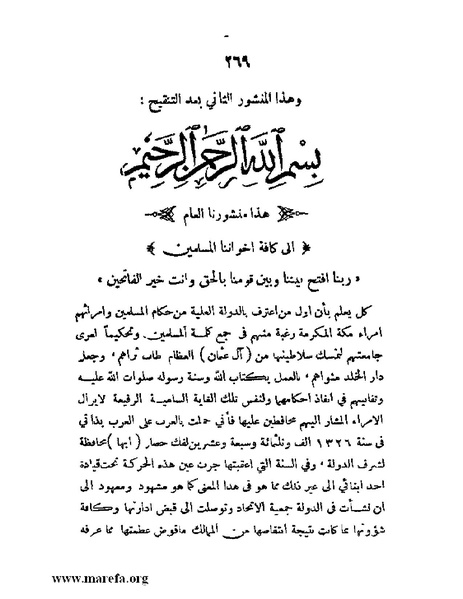 ٢٦٩
وهذا المنشور الثاني بعد التنقيح :
بسم الله الرحمن الرحيم
هذا منشورنا العام
﴿ الى كافة اخواننا المسلمين ﴾
« ربنا افتح بيننا وبين قومنا بالحق وانت خير الفاتحين »
كل يعلم بأن اول من اعترف بالدولة العلية من حكام المسلمين وامرائهم
امراء مكة المكرمة رغبة منهم في جمع كلمة المسلمين. وتحكيماً لعرى
جامعتهم لتمسك سلاطينها من ( آل عثمان ) العظام طاب ثراهم ، وجعل
دار الخلد مثواهم ، بالعمل بكتاب الله وسنة رسوله صلوات الله عليه
وتفانيهم في انفاذ احكامهما ولنفس تلك الغاية السامية الرفيعة لايزال
الامراء المشار اليهم محافظين عليها فأني حملت بالعرب على العرب بذاتي
في سنة ١٣٢٦ الف وثلثمائة وسبعة وعشرين لفك حصار ( ابها ) محافظة
لشرف الدولة ، وفي السنة التي اعقبتها جرت عين هذه الحركة تحت قيادة
احد ابنائي الى غير ذلك مما هو في هذا المعنى كما هو مشهود ومعهود الى
ان نشأت في الدولة جمعية الاتحاد وتوصلت الى قبض ادارتها وكافة
شؤونها مما كانت نتيجة انتقاصها من الممالك ماقوض عظمتها مما عرفه
www.marefa.org